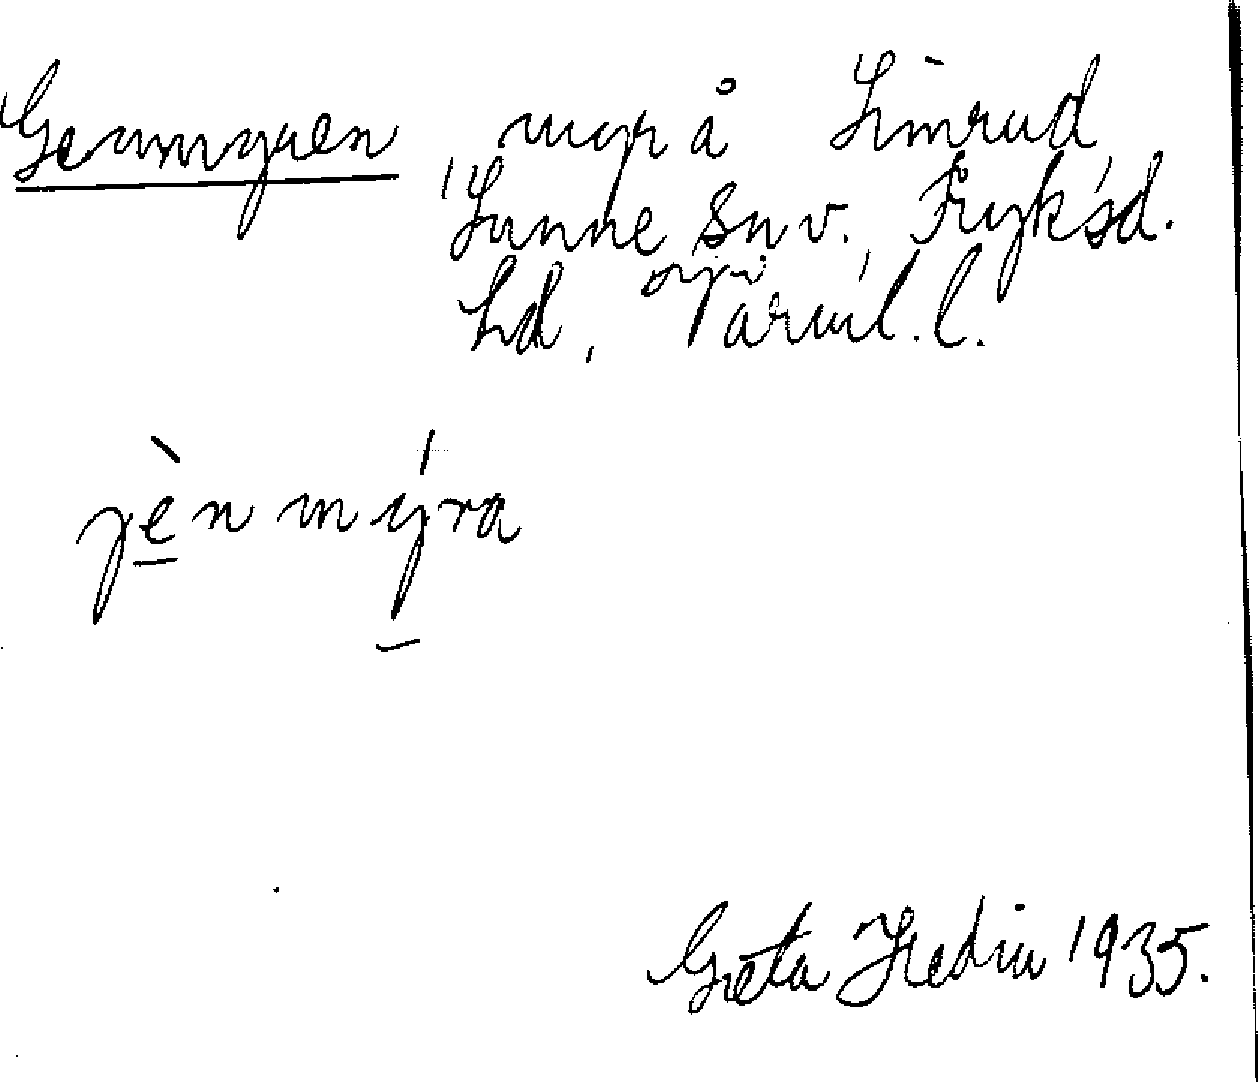 Genmyren myr å Limrud
Sunne sn v. Fryksd.
hd, Värml. l.
jènmýra
Greta Hedin 1935.